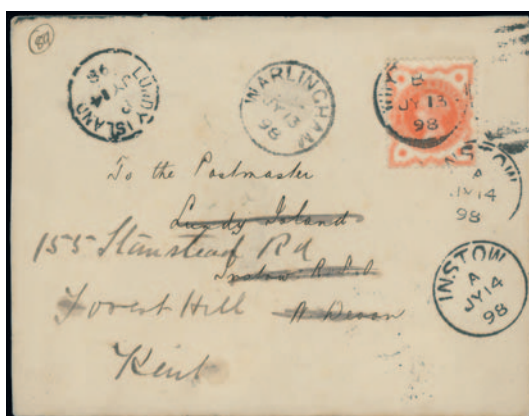 87
LUNDY ISLAND
JY 14
98
WARLINGHAM
JY 13
98
B
JY 13
98
A
JY 14
98
INSTOW
A
JY 14
98
To the Postmaster
Lundy Island
155 Stanstead Rd
Instow R.S.O
Forest Hill
N Devon
Kent